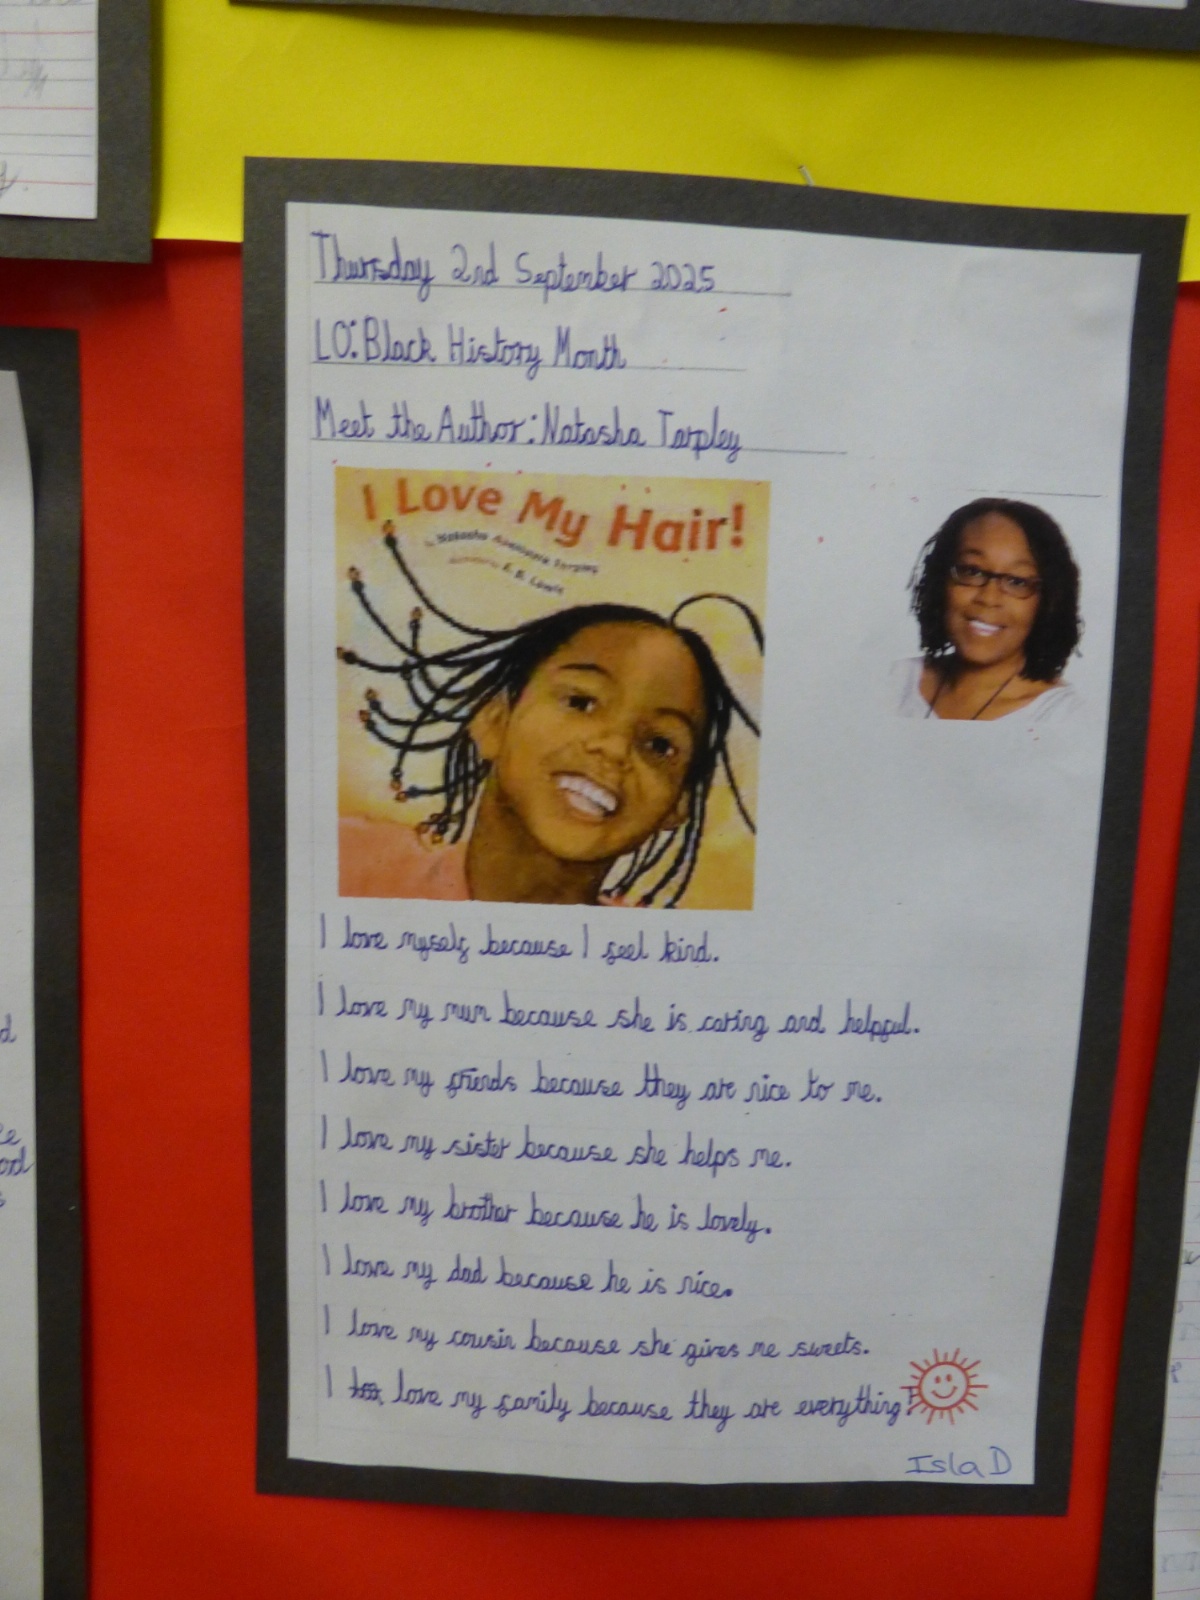 Thursday 2nd September 2025
LO: Black History Month
Meet the Author: Natasha Tarpley
I Love My Hair!
by Natasha Anastasia Tarpley
illustrated by E. B. Lewis
I love myself because I feel kind.
I love my mum because she is caring and helpful.
I love my friends because they are nice to me.
I love my sister because she helps me.
I love my brother because he is lovely.
I love my dad because he is nice.
I love my cousin because she gives me sweets.
I love my family because they are everything!
Isla D